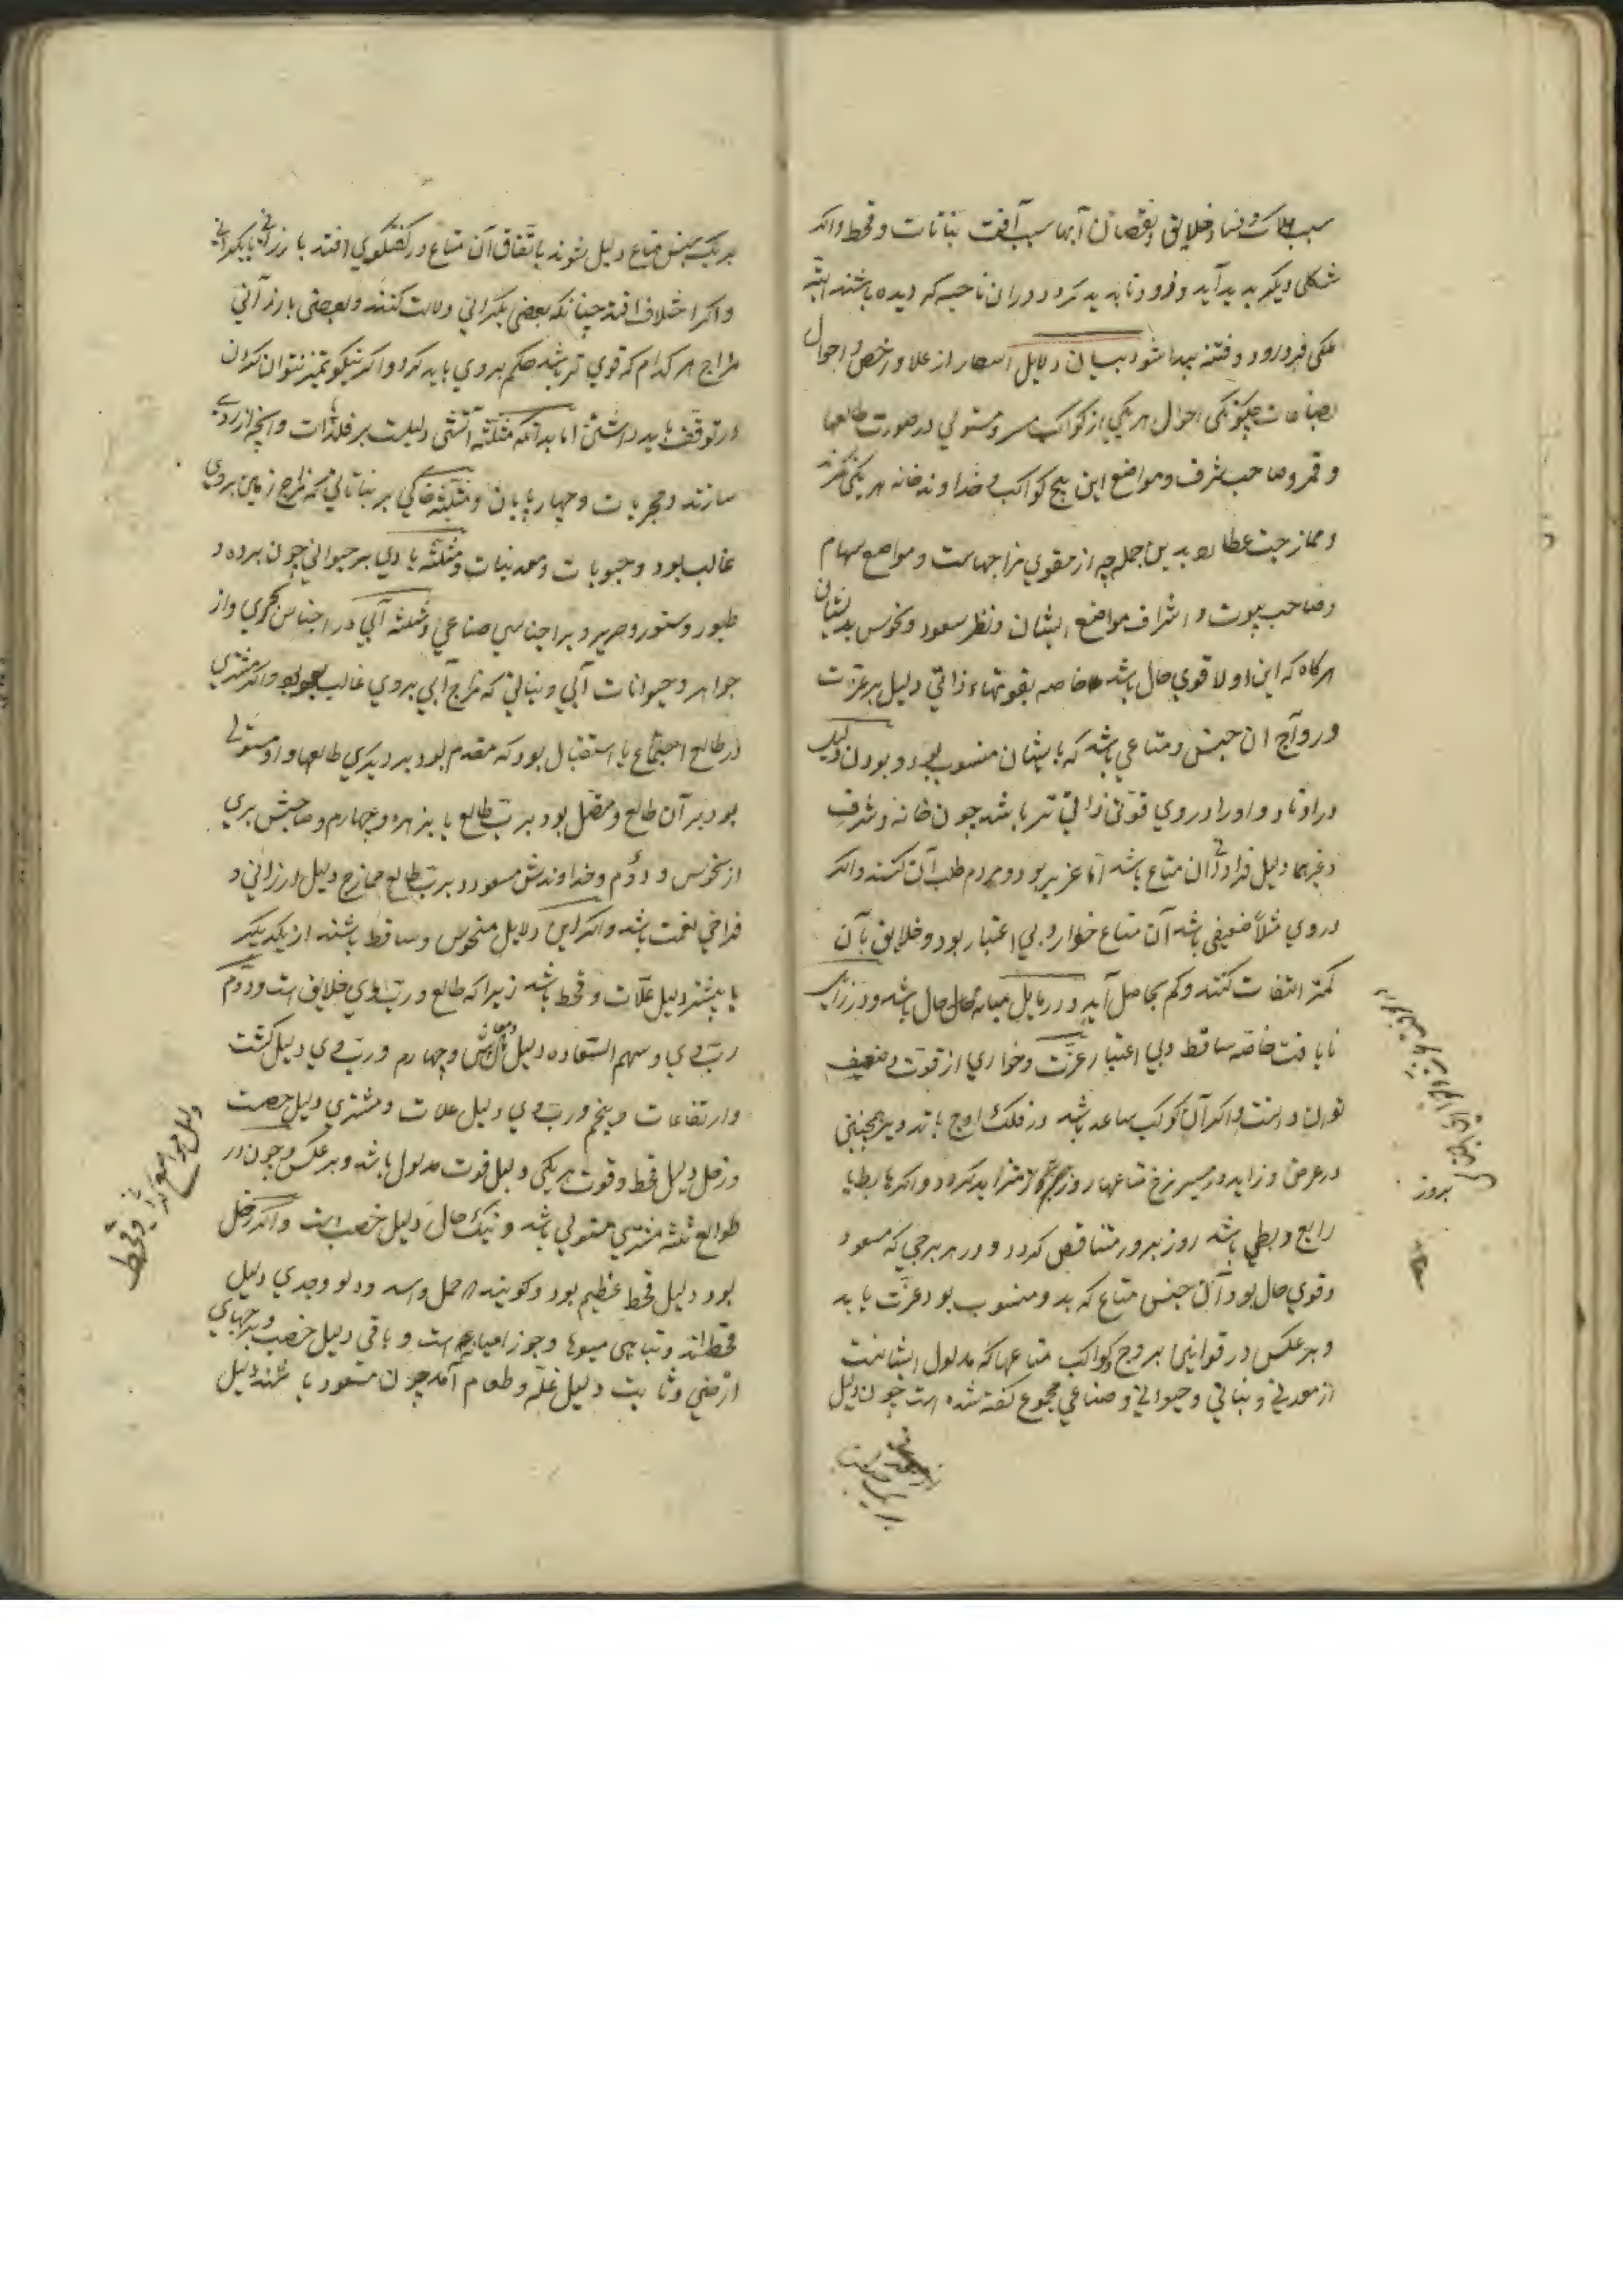 سبب هلاک و فساد خلایق و نقصان آبها سبب آفت نباتات و قحط و اگر
شکلی دیگر پدید آید و فرود ناپدید گردد در آن ناحیت که دیده باشند البته
ملکی فرو رود و فتنه پیدا شود بیان دلایل اسعار از غلا و رخص و احوال
بضاعات چگونگی احوال هر یکی از کواکب و مستولی در صورت طالعها
و قمر و صاحب شرف و مواضع این پنج کواکب و خداوند خانه هر یکی
و ممازجت عطارد بدین جمله چه از مقوی مزاجهاست و مواضع سهام
و صاحب بیوت و اشراف مواضع ایشان و نظر سعود و نحوس بدیشان
هرگاه که این ادلا قوی حال باشد خاصه بقوتهاء ذاتی دلیل بر عزت
و رواج آن جنس و متاعی باشد که بایشان منسوب بود و بودن دلیل
در اوتاد و او را در وی قوتی ذاتی تر باشد چون خانه و شرف
و غیرهما دلیل فراوانی آن متاع باشد اما عزیز بود و مردم طلب آن کنند و اگر
در وی مثلا ضعیفی باشد آن متاع خوار و بی اعتبار بود و خلایق بآن
کمتر التفات کنند و کم بحاصل آید و در مایل میانه حال باشد و در زایل
نایافت خاصه ساقط و بی اعتبار عزت و خواری از قوت و ضعیف
توان دانست و اگر آن کوکب صاعد باشد در فلک اوج یا تدویر همچنین
در عرض و زاید در مسیر نرخ متاعها روز بروز متزاید گردد و اگر هابط یا
راجع و بطی باشد روز بروز متناقص گردد و در هر برجی که مسعود
و قوی حال بود آن جنس متاع که بدو منسوب بود عزت یابد
و بر عکس در قوانین بروج کواکب متاعها که مدلول ایشانست
از معدنی و نباتی و حیوانی و صناعی مجموع گفته شده است چون دلیل
بروز
بر یک جنس متاع دلیل شوند باتفاق آن متاع در گفتگوی افتد با رزانی یا بگرانی
و اگر اختلاف افتد چنانکه بعضی بگرانی دلالت کنند و بعضی بارزانی
مزاج هر کدام که قوی تر باشد حکم بر وی باید کرد و اگر نیکو تمیز نتوان کردن
در توقف باید داشتن اما بدانکه مثلثه آتشی دلیلست بر فلذات و آنچه از وی
سازند و حجریات و چهارپایان و مثلثه خاکی بر نباتاتی که مزاج زمین بر وی
غالب بود و حبوبات و معدنیات و مثلثه بادی بر حیوانی چون برده و
طیور و ستور و حریر و بر اجناس صناعی و مثلثه آبی در اجناس بحری و از
جواهر و حیوانات آبی و نباتی که مزاج آبی بر وی غالب بود و اگر مشتری
در طالع اجتماع یا استقبال بود که مقدم بود بر دیگری طالعها و او مستولی
بود بر آن طالع و متصل بود برب طالع یا بزهره و چهارم و صاحبش بری
از نحوس و دوم و خداوندش مسعود و برب طالع ممازج دلیل ارزانی و
فراخی نعمت باشد و اگر این دلایل منحوس و ساقط باشند از یکدیگر
یا بیشتر دلیل غلات و قحط باشد زیرا که طالع و رب وی خلایق است و دوم
رب وی و سهم السعاده دلیل معاش و چهارم و رب وی دلیل کشت
و ارتفاعات و پنجم و رب وی دلیل غلات و مشتری دلیل خصب
و زحل دلیل قحط و قوت هر یکی دلیل قوت مدلول باشد و بر عکس و چون در
طوالع ثلثه مشتری مستولی باشد و نیک حال دلیل خصب است و اگر زحل
بود دلیل قحط عظیم بود و گویند حمل و اسد و دلو و جدی دلیل
قحط اند و تباهی میوها و جوزا میانه است و باقی دلیل خصب و برجهای
ارضی و ثابت دلیل غله و طعام آمد چون مسعود باشند دلیل